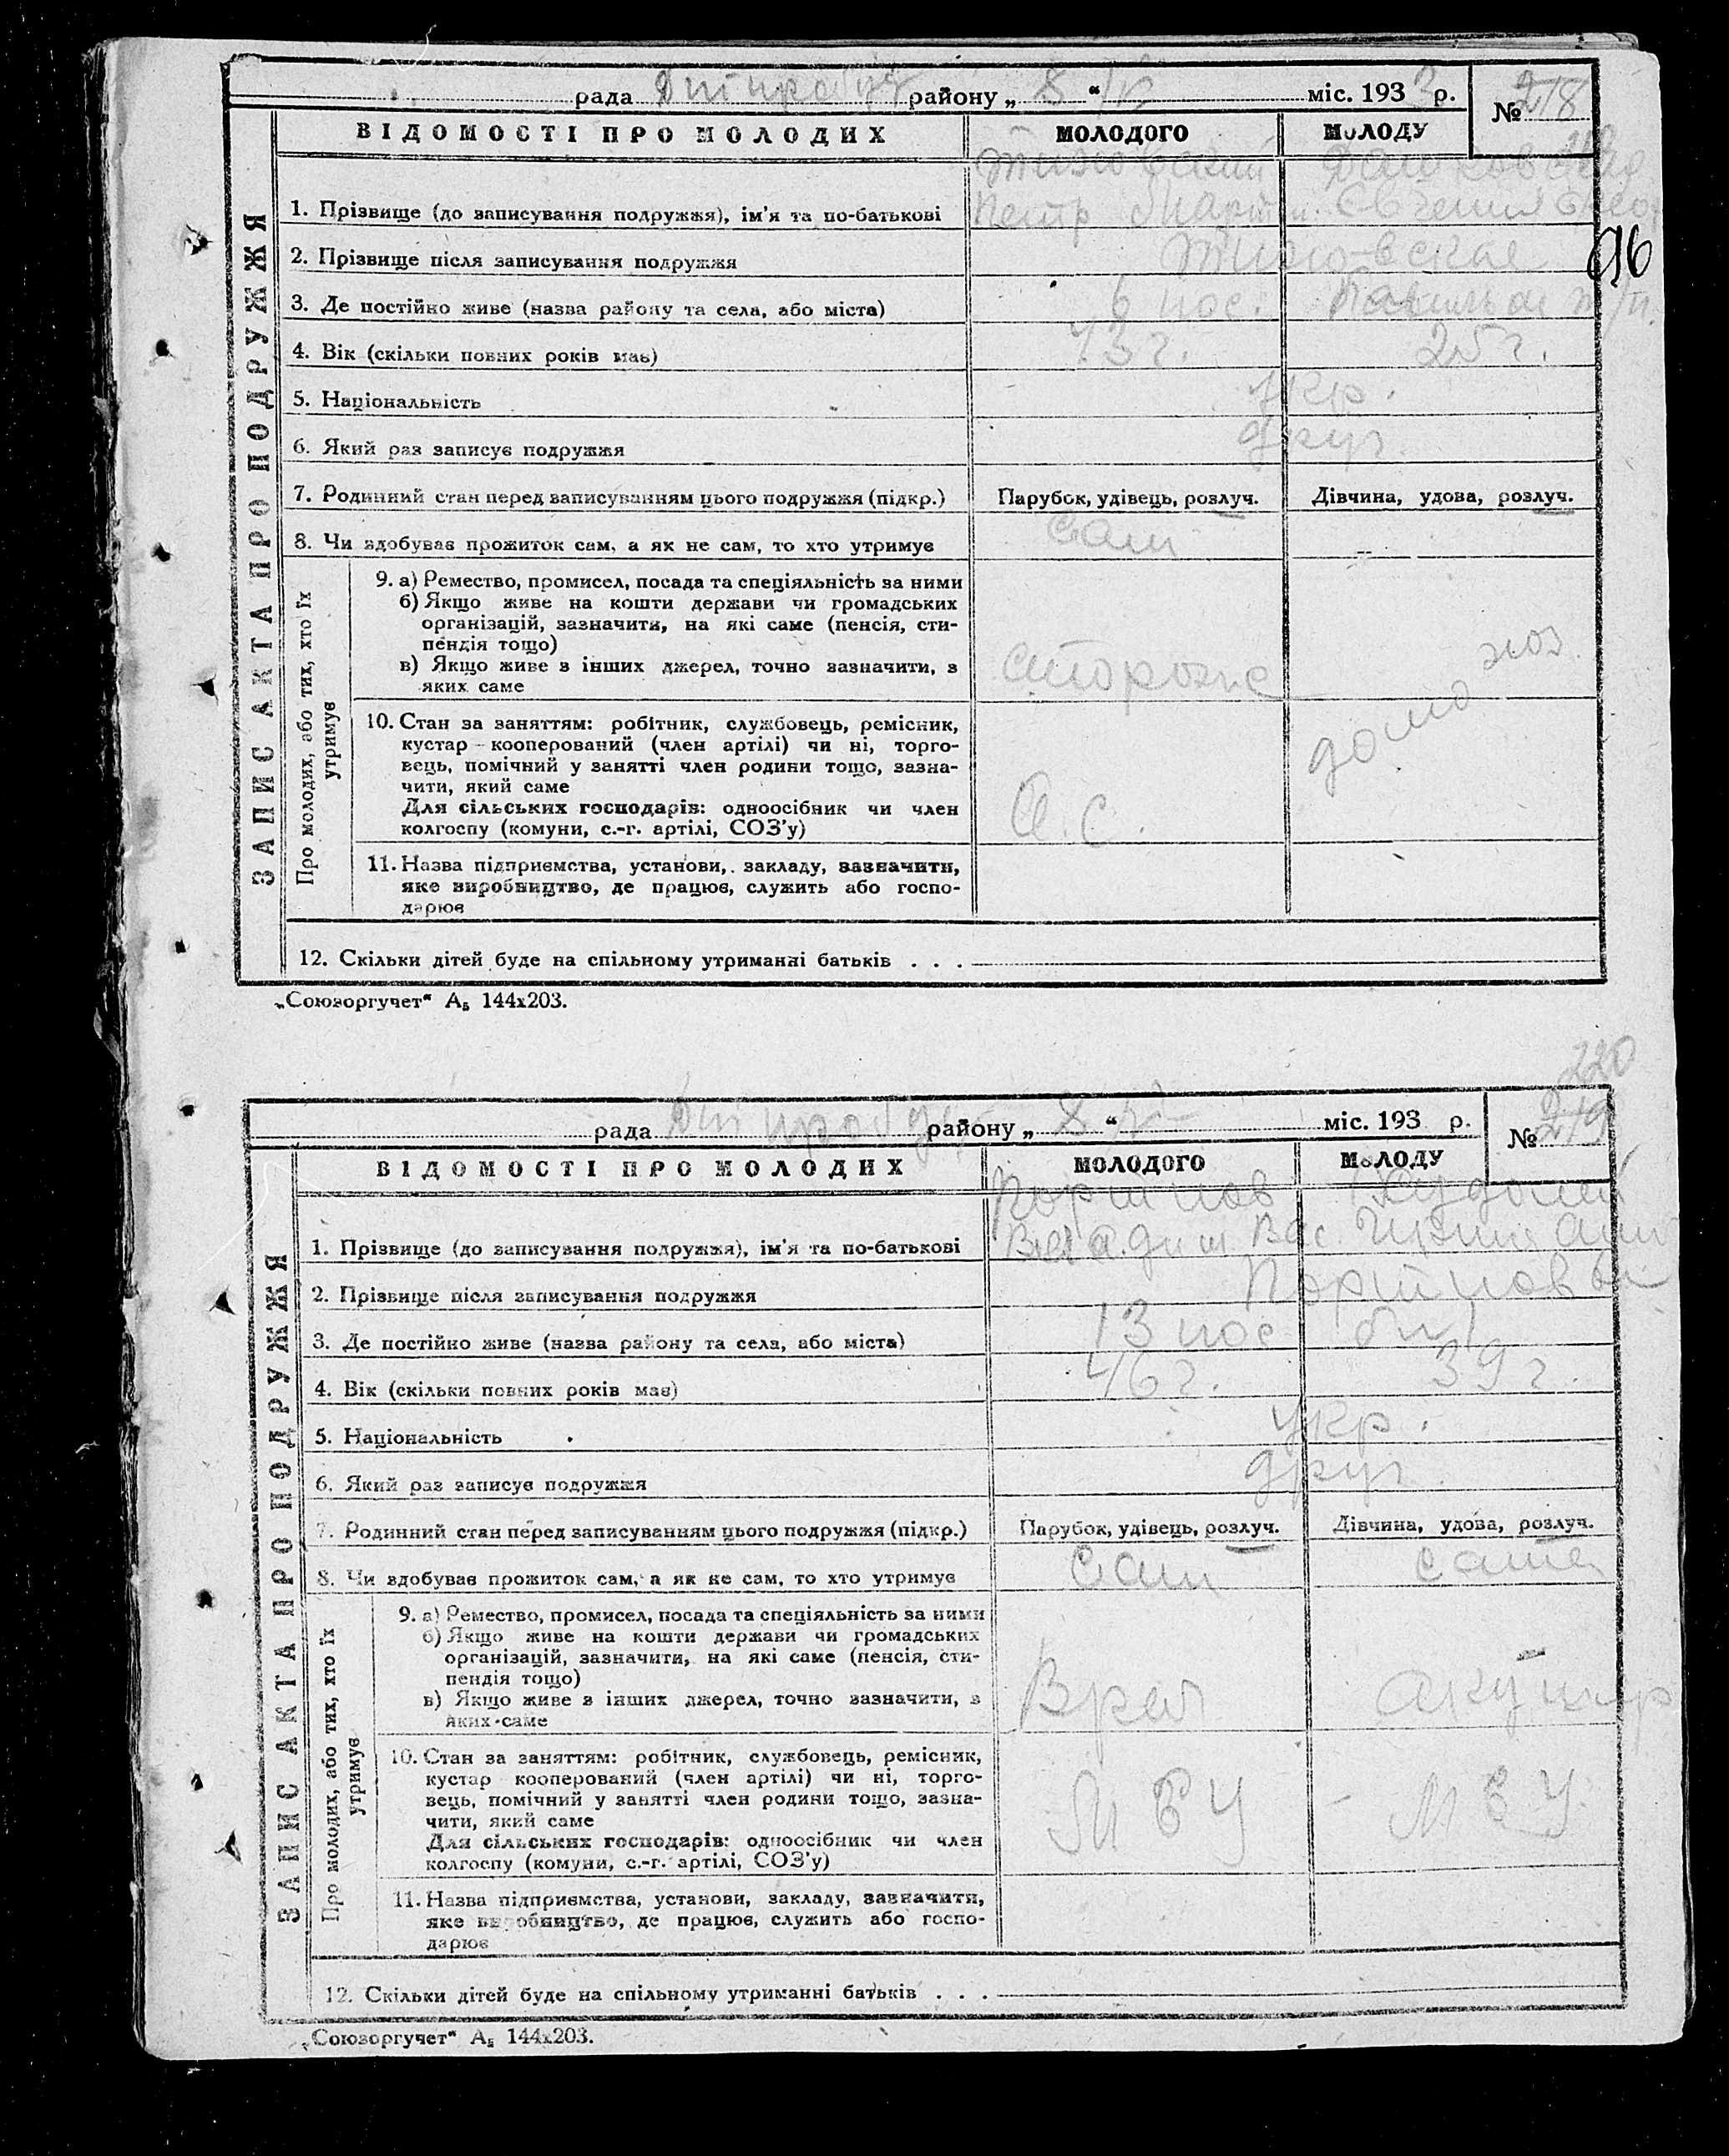 рада Дніпробуд району „ 8 “ міс. 1933 р.
№ 218
ВІДОМОСТІ ПРО МОЛОДИХ МОЛОДОГО МОЛОДУ
ЗАПИС АКТА ПРО ПОДРУЖЖЯ
96
1. Прізвище (до записування подружжя), ім'я та по-батькові Петр Март. Евгения
2. Прізвище після записування подружжя
3. Де постійно живе (назва району та села, або міста) 6 пос.
4. Вік (скільки повних років має) 43 г. 25 г.
5. Національність укр.
6. Який раз записує подружжя друг.
7. Родинний стан перед записуванням цього подружжя (підкр.) Парубок, удівець, розлуч. Дівчина, удова, розлуч.
8. Чи здобуває прожиток сам, а як не сам, то хто утримує сам
Про молодих, або тих, хто їх утримує
9. а) Ремество, промисел, посада та спеціяльність за ними
б) Якщо живе на кошти держави чи громадських
організацій, зазначити, на які саме (пенсія, сти-
пендія тощо)
в) Якщо живе з інших джерел, точно зазначити, з
яких саме
сторож
домохоз
10. Стан за заняттям: робітник, службовець, ремісник,
кустар - кооперований (член артілі) чи ні, торго-
вець, помічний у занятті член родини тощо, зазна-
чити, який саме
Для сільських господарів: одноосібник чи член
колгоспу (комуни, с.-г. артілі, СОЗ'у)
11. Назва підприємства, установи, закладу, зазначити,
яке виробництво, де працює, служить або госпо-
дарює
12. Скільки дітей буде на спільному утриманні батьків . . .
„Союзоргучет“ А₅ 144x203.
220
рада Дніпробуд району „ 8 “ міс. 193 р.
№ 219
ВІДОМОСТІ ПРО МОЛОДИХ МОЛОДОГО МОЛОДУ
ЗАПИС АКТА ПРО ПОДРУЖЖЯ
Портнов Худолей
1. Прізвище (до записування подружжя), ім'я та по-батькові Владим Вас.
2. Прізвище після записування подружжя Портновы
3. Де постійно живе (назва району та села, або міста) 13 пос
4. Вік (скільки повних років має) 46 г. 39 г.
5. Національність укр.
6. Який раз записує подружжя друг.
7. Родинний стан перед записуванням цього подружжя (підкр.) Парубок, удівець, розлуч. Дівчина, удова, розлуч.
8. Чи здобуває прожиток сам, а як не сам, то хто утримує сам сама
Про молодих, або тих, хто їх утримує
9. а) Ремество, промисел, посада та спеціяльність за ними
б) Якщо живе на кошти держави чи громадських
організацій, зазначити, на які саме (пенсія, сти-
пендія тощо)
в) Якщо живе з інших джерел, точно зазначити, з
яких саме
Врач акушер
10. Стан за заняттям: робітник, службовець, ремісник,
кустар кооперований (член артілі) чи ні, торго-
вець, помічний у занятті член родини тощо, зазна-
чити, який саме
Для сільських господарів: одноосібник чи член
колгоспу (комуни, с.-г. артілі, СОЗ'у)
11. Назва підприємства, установи, закладу, зазначити,
яке виробництво, де працює, служить або госпо-
дарює
12. Скільки дітей буде на спільному утриманні батьків . . .
„Союзоргучет“ А₅ 144x203.